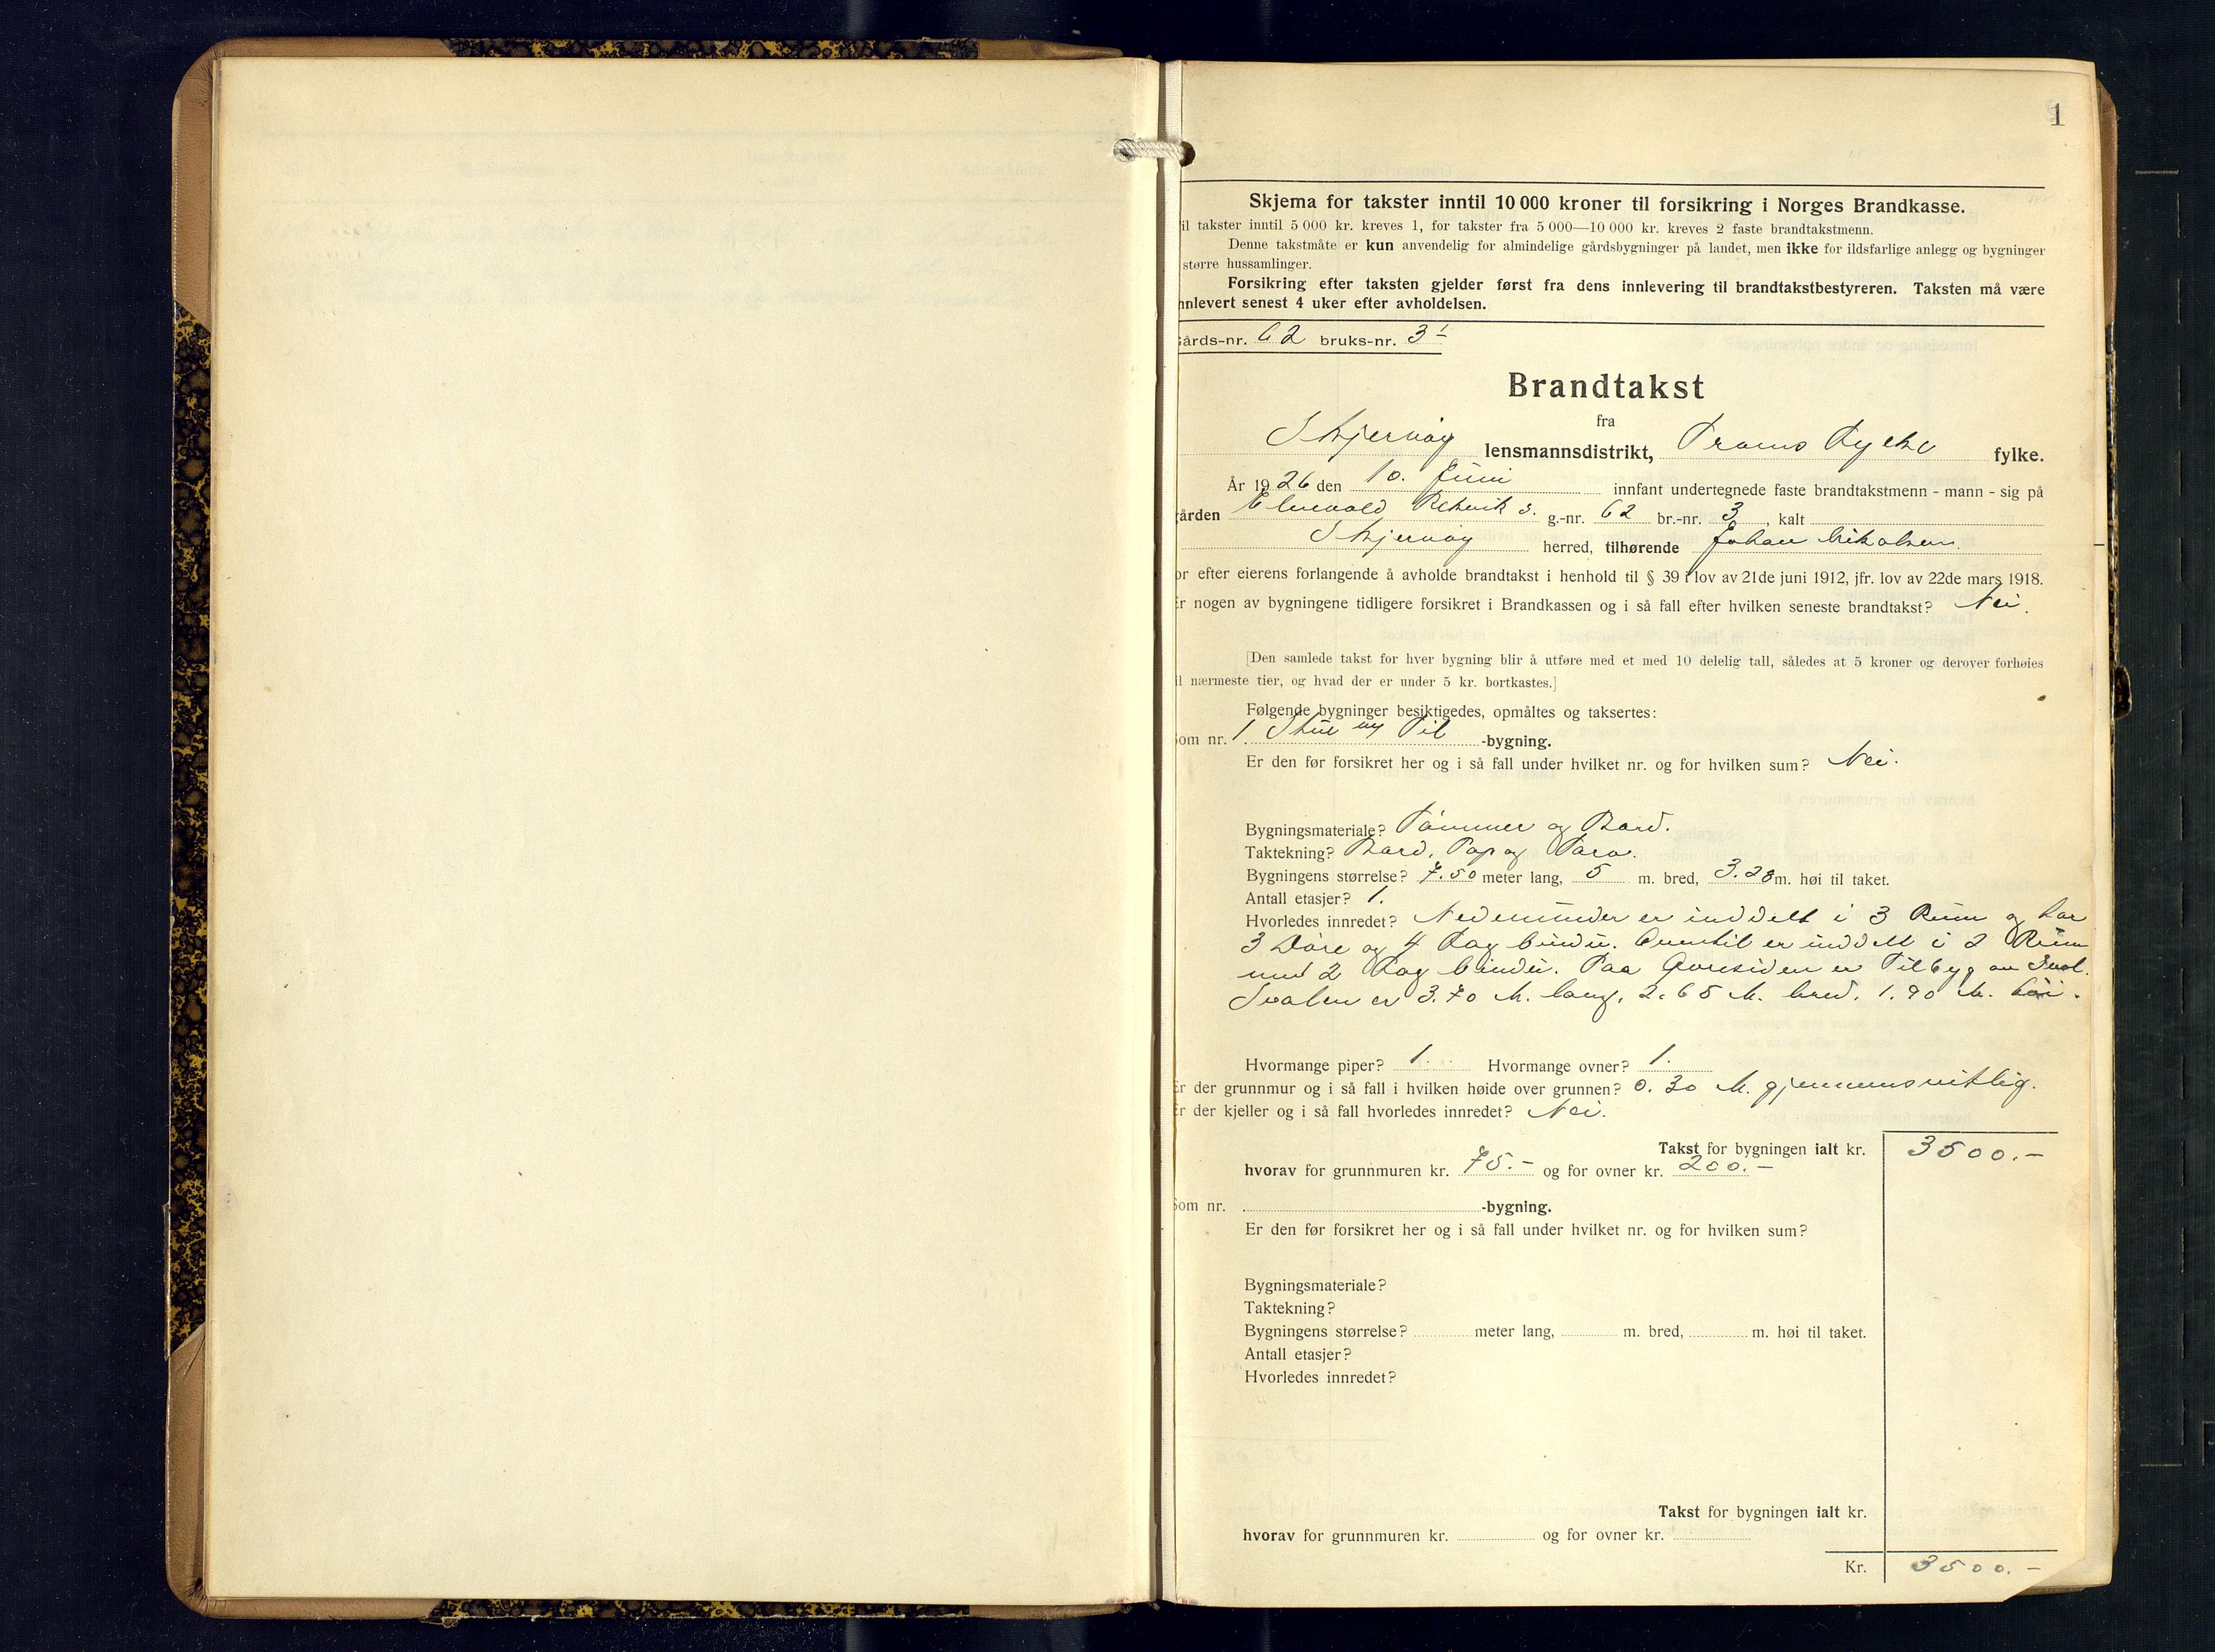 1
Skjema for takster inntil 10 000 kroner til forsikring i Norges Brandkasse.
il takster inntil 5 000 kr. kreves 1, for takster fra 5 000—10 000 kr. kreves 2 faste brandtakstmenn.
Denne takstmåte er kun anvendelig for almindelige gårdsbygninger på landet, men ikke for ildsfarlige anlegg og bygninger
større hussamlinger.
Forsikring efter taksten gjelder først fra dens innlevering til brandtakstbestyreren. Taksten må være
nnlevert senest 4 uker efter avholdelsen.
Gårds-nr. 62 bruks-nr. 3
Brandtakst
fra
Skjervøy lensmannsdistrikt, Troms Fylke fylke.
År 1926 den 10. Juni innfant undertegnede faste brandtakstmenn - mann - sig på
gården Elvevold g.-nr. 62 br.-nr. 3, kalt
Skjervøy herred, tilhørende Johan Mikalsen.
or efter eierens forlangende å avholde brandtakst i henhold til § 39 i lov av 21de juni 1912, jfr. lov av 22de mars 1918.
Er nogen av bygningene tidligere forsikret i Brandkassen og i så fall efter hvilken seneste brandtakst? Nei.
[Den samlede takst for hver bygning blir å utføre med et med 10 delelig tall, således at 5 kroner og derover forhøies
il nærmeste tier, og hvad der er under 5 kr. bortkastes.]
Følgende bygninger besiktigedes, opmåltes og taksertes:
Som nr. 1. Stue og Til -bygning.
Er den før forsikret her og i så fall under hvilket nr. og for hvilken sum? Nei.
Bygningsmateriale? Tømmer og Bord.
Taktekning? Bord, Pap og Torv.
Bygningens størrelse? 7.50 meter lang, 5 m. bred, 3.28 m. høi til taket.
Antall etasjer? 1.
Hvorledes innredet? Nedenunder er inddelt i 3 Rum og har
3 Døre og 4 Fag vindu. Oventil er inddelt i 2 Rum
med 2 Fag vindu. Paa Gavesiden er Tilbyg av Sval.
Svalen er 3.70 M. lang, 2.65 M. bred, 1.90 M. høi.
Hvormange piper? 1. Hvormange ovner? 1.
Er der grunnmur og i så fall i hvilken høide over grunnen? 0.30 M. gjennemsnitlig.
Er der kjeller og i så fall hvorledes innredet? Nei.
Takst for bygningen ialt kr. 3500.-
hvorav for grunnmuren kr. 75.- og for ovner kr. 200.-
Som nr. -bygning.
Er den før forsikret her og i så fall under hvilket nr. og for hvilken sum?
Bygningsmateriale?
Taktekning?
Bygningens størrelse? meter lang, m. bred, m. høi til taket.
Antall etasjer?
Hvorledes innredet?
Takst for bygningen ialt kr.
hvorav for grunnmuren kr. og for ovner kr.
Kr. 3500.-